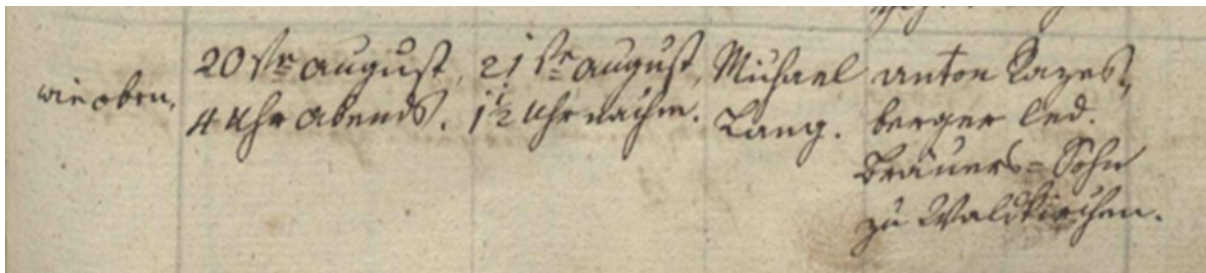 wie oben.
20ste August,
4 Uhr Abends.
21ste August,
1½ Uhr nachm.
Michael
Lang.
Anton Kazes-
berger led.
Bräuers=Sohn
zu Waldkirchen.